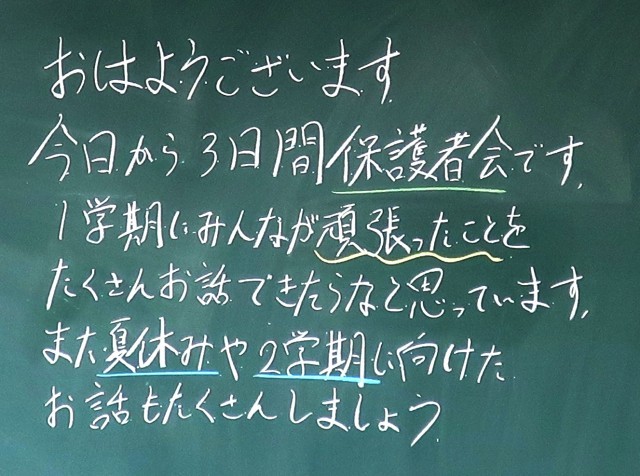 おはようございます
今日から3日間保護者会です。
1学期にみんなが頑張ったことを
たくさんお話できたらなと思っています。
また夏休みや2学期に向けた
お話もたくさんしましょう